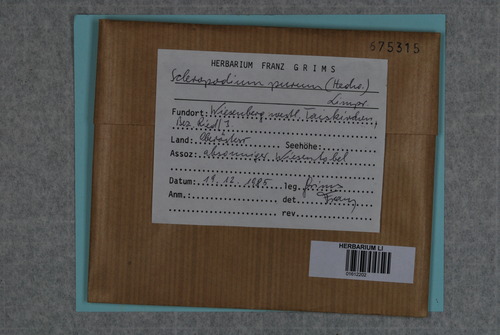 675315
HERBARIUM FRANZ GRIMS
Scleropodium purum (Hedw.)
Limpr.
Fundort: Wiesenberg nördl. Taiskirchen,
Bez. Ried/I
Land: Oberösterr. Seehöhe:
Assoz: Wiesentobel
Datum: 19.12.1985 leg. Grims
Anm.: det. Franz
rev.
HERBARIUM LI
01612202